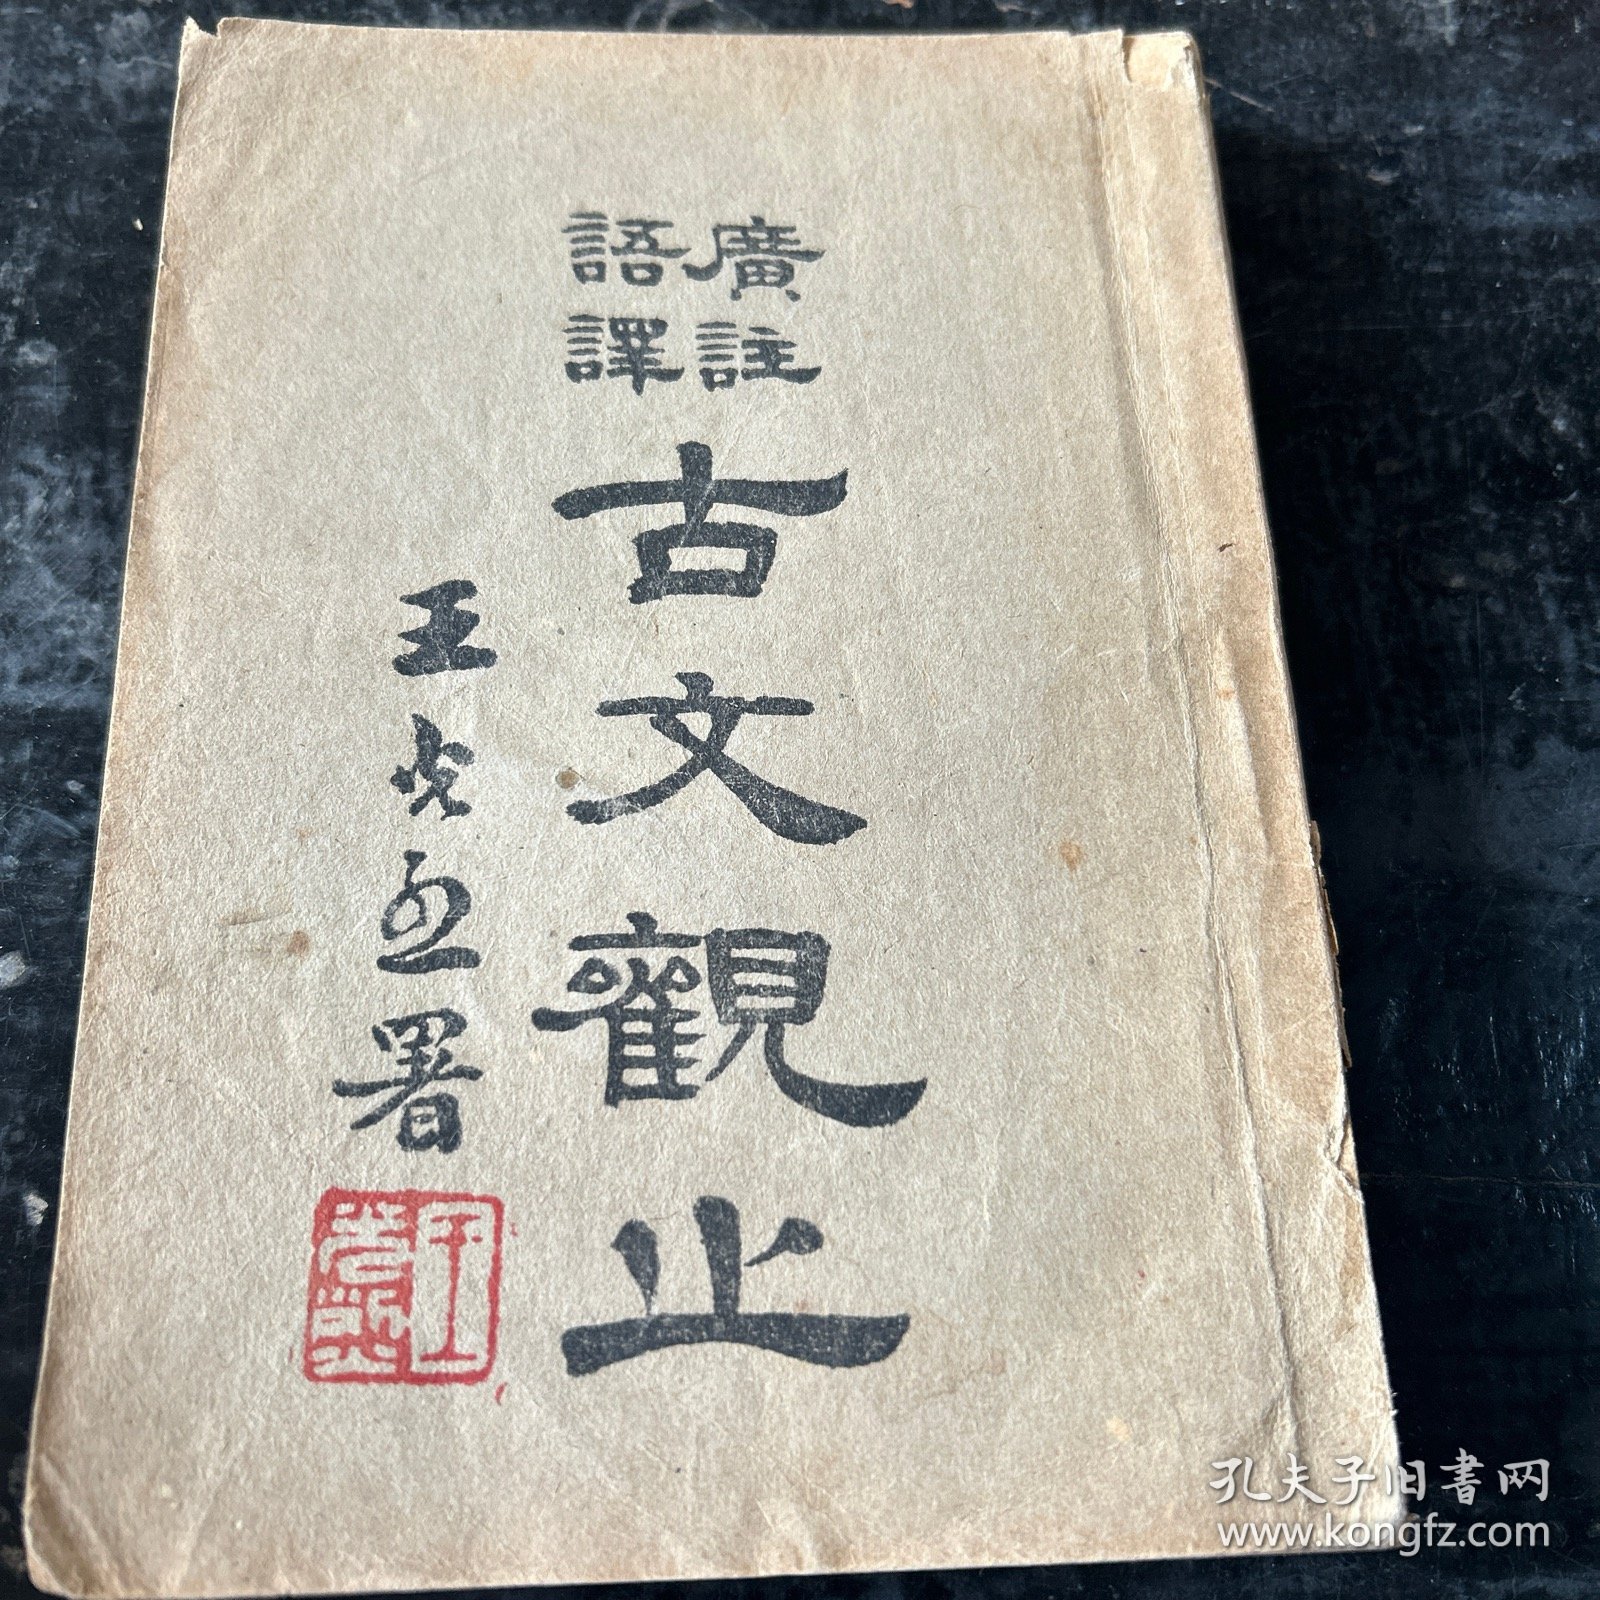 廣註
語譯
古文觀止
王
署
孔夫子旧書网
www.kongfz.com